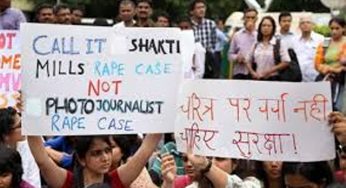 CALL IT SHAKTI
MILLS RAPE CASE
NOT
PHOTOJOURNALIST
RAPE CASE
चरित्र पर चर्चा नहीं
चाहिए सुरक्षा!